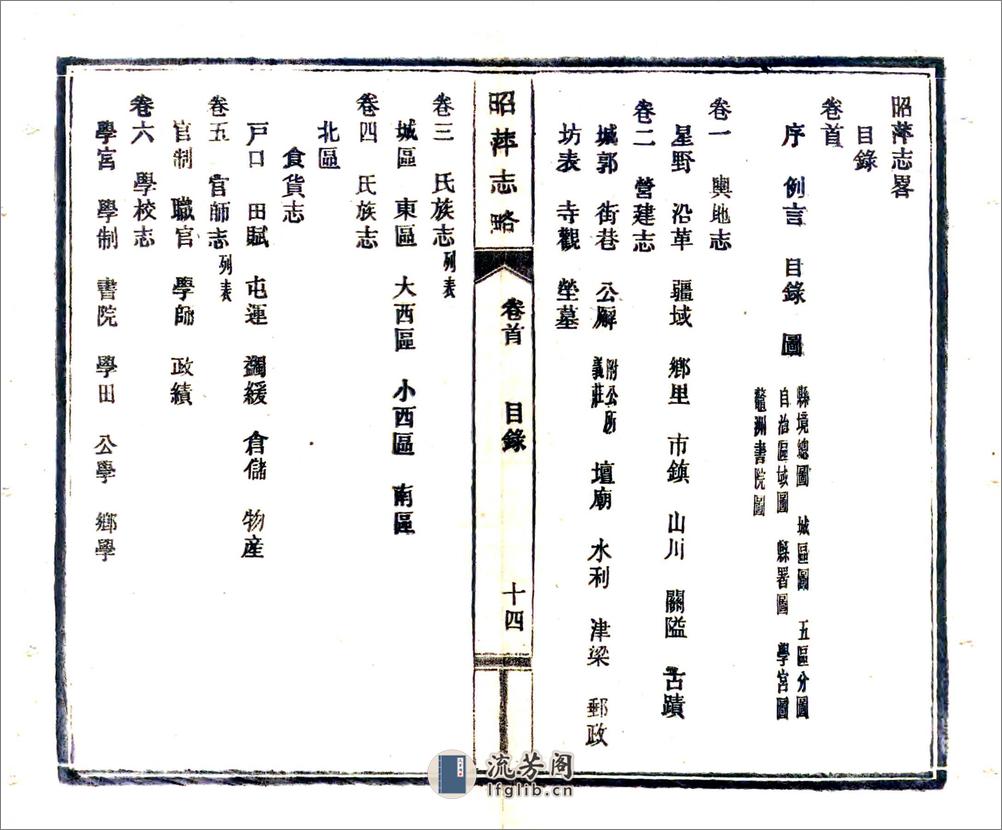 昭萍志畧
目錄
卷首
序 例言 目錄 圖 縣境總圖 城區圖 五區分圖
自治區域圖 縣署圖 學宮圖
鼇洲書院圖
卷一 輿地志
星野 沿革 疆域 鄉里 市鎮 山川 關隘 古蹟
卷二 營建志
城郭 街巷 公廨 附公所
義莊 壇廟 水利 津梁 郵政
坊表 寺觀 塋墓
昭萍志略 卷首 目錄 十四
卷三 氏族志 列表
城區 東區 大西區 小西區 南區
卷四 氏族志
北區
食貨志
戸口 田賦 屯運 蠲緩 倉儲 物産
卷五 官師志 列表
官制 職官 學師 政績
卷六 學校志
學宮 學制 書院 學田 公學 鄉學
流芳阁
lfglib.cn